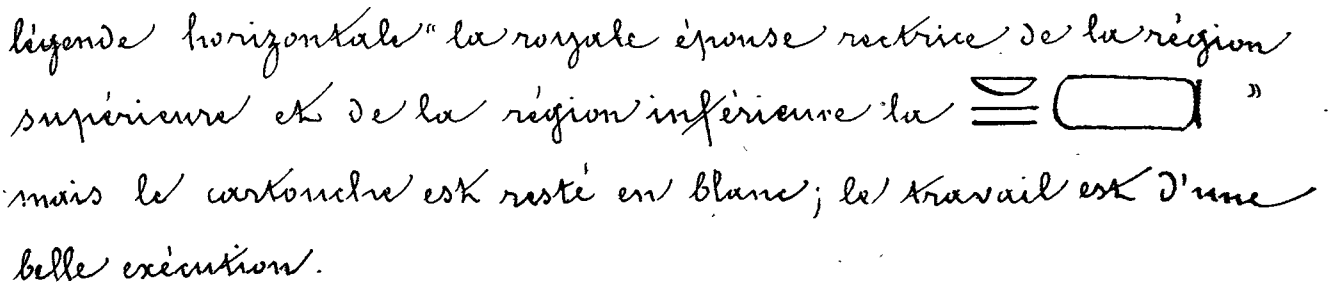 légende horizontale "la royale épouse rectrice de la région
supérieure et de la région inférieure la 𓎟𓇿𓇿 "
mais le cartouche est resté en blanc; le travail est d'une
belle exécution.